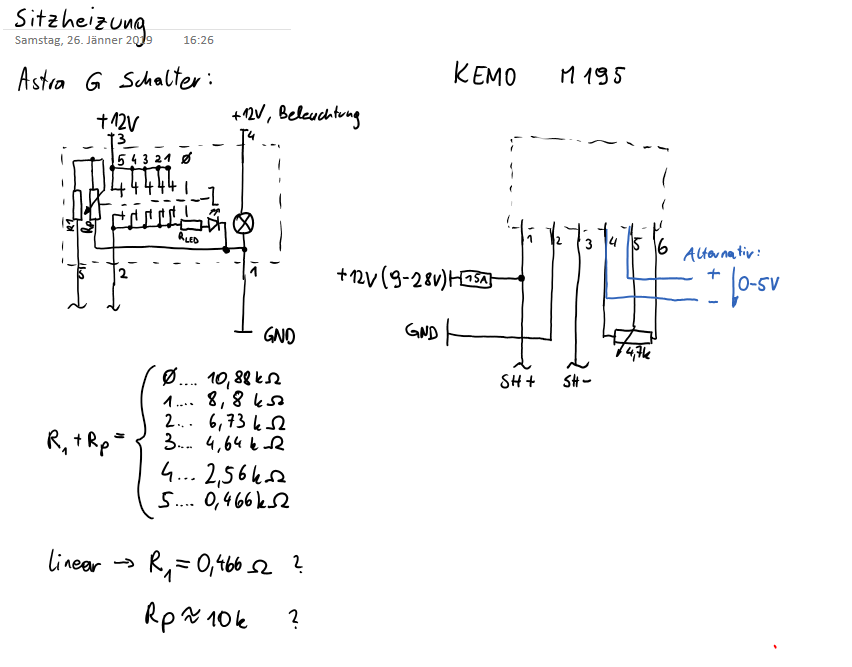 Sitzheizung
Samstag, 26. Jänner 2019 16:26
Astra G Schalter:
KEMO M195
+12V
+12V, Beleuchtung
3
4
5 4 3 2 1 Ø
R1
Rp
R LED
5
2
1
GND
1 2 3 4 5 6
Alternativ:
+
0-5V
-
+12V (9-28V)
15A
GND
4,7k
SH+
SH-
R1 + Rp =
Ø.... 10,88 kΩ
1.... 8,8 kΩ
2... 6,73 kΩ
3.... 4,64 kΩ
4... 2,56 kΩ
5.... 0,466 kΩ
linear → R1 = 0,466 Ω ?
Rp ≈ 10k ?